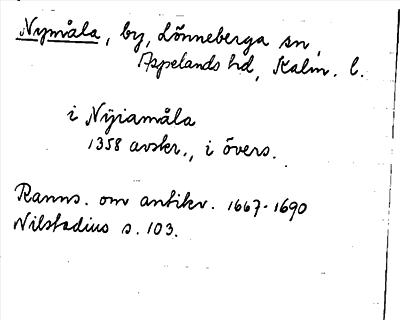 Nymåla, by, Lönneberga sn,
Aspelands hd, Kalm. l.
i Nyiamåla
1358 avskr., i övers.
Ranns. om antikv. 1667-1690
Nilstadius s. 103.